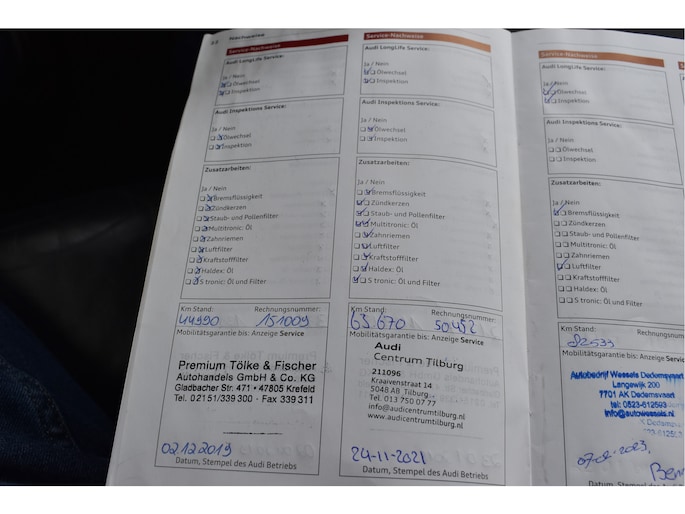 Nachweise
Service-Nachweise
Audi LongLife Service:
Ja / Nein
Ölwechsel
Inspektion
Audi Inspektions Service:
Ja / Nein
Ölwechsel
Inspektion
Zusatzarbeiten:
Ja / Nein
Bremsflüssigkeit
Zündkerzen
Staub- und Pollenfilter
Multitronic: Öl
Zahnriemen
Luftfilter
Kraftstofffilter
Haldex: Öl
S tronic: Öl und Filter
Km Stand: Rechnungsnummer:
44990 151009
Mobilitätsgarantie bis: Anzeige Service
Premium Tölke & Fischer
Autohandels GmbH & Co. KG
Gladbacher Str. 471 · 47805 Krefeld
Tel. 0 21 51/339 300 · Fax 339 311
02.12.2019
Datum, Stempel des Audi Betriebs
Service-Nachweise
Audi LongLife Service:
Ja / Nein
Ölwechsel
Inspektion
Audi Inspektions Service:
Ja / Nein
Ölwechsel
Inspektion
Zusatzarbeiten:
Ja / Nein
Bremsflüssigkeit
Zündkerzen
Staub- und Pollenfilter
Multitronic: Öl
Zahnriemen
Luftfilter
Kraftstofffilter
Haldex: Öl
S tronic: Öl und Filter
Km Stand: Rechnungsnummer:
63.670 50452
Mobilitätsgarantie bis: Anzeige Service
Audi
Centrum Tilburg
211096
Kraaivenstraat 14
5048 AB Tilburg
Tel. 013 750 07 77
info@audicentrumtilburg.nl
www.audicentrumtilburg.nl
24-11-2021
Datum, Stempel des Audi Betriebs
Service-Nachweise
Audi LongLife Service:
Ja / Nein
Ölwechsel
Inspektion
Audi Inspektions Service:
Ja / Nein
Ölwechsel
Inspektion
Zusatzarbeiten:
Ja / Nein
Bremsflüssigkeit
Zündkerzen
Staub- und Pollenfilter
Multitronic: Öl
Zahnriemen
Luftfilter
Kraftstofffilter
Haldex: Öl
S tronic: Öl und Filter
Km Stand:
82533
Mobilitätsgarantie bis: Anzeige
Autobedrijf Wessels Dedemsvaart
Langewijk 200
7701 AK Dedemsvaart
tel: 0523-612593
info@autowessels.nl
Datum, Stempel des Audi